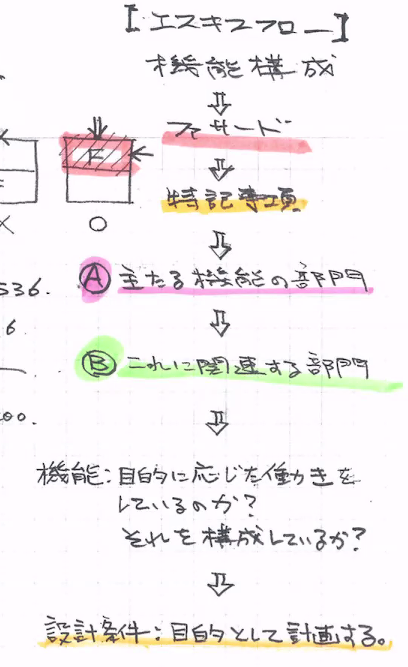 【エスキスフロー】
機能構成
⇩
ファサード
F
×
○
⇩
特記事項
⇩
536.
Ⓐ 主たる機能の部門
6
⇩
Ⓑ これに関連する部門
00.
⇩
機能:目的に応じた働きを
しているのか?
それを構成しているか?
⇩
設計条件:目的として計画する。